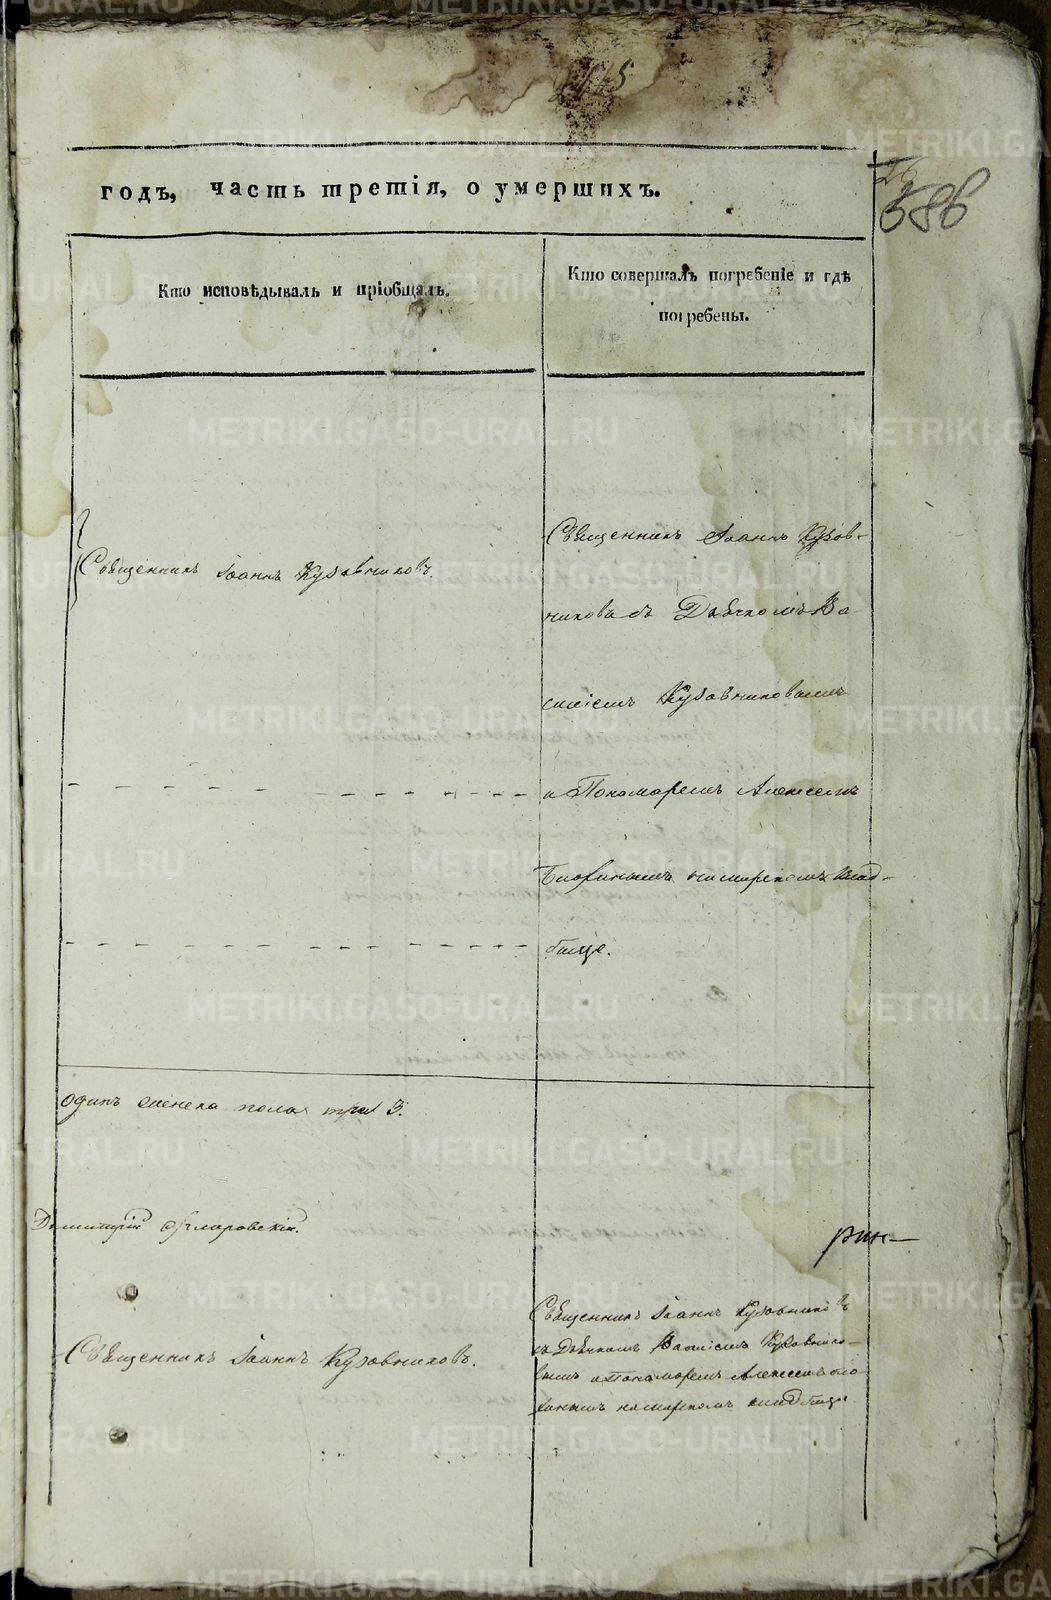 METRIKI.GASO-URAL.RU
586
годъ, часть третія, о умершихъ.
Кто исповѣдывалъ и пріобщалъ.
Кто совершалъ погребеніе и гдѣ
погребены.
Священникъ Іоаннъ Кузовниковъ.
Священникъ Іоаннъ Кузов-
никовъ съ Дьячкомъ Ва-
силіемъ Кузовниковымъ
и Пономаремъ Алексеемъ
на мирскомъ клад-
бище.
одинъ женска пола три 3.
Димитрій
рин-
Священникъ Іоаннъ Кузовниковъ.
Священникъ Іоаннъ Кузовниковъ
съ Дьячкомъ Василіемъ Кузовнико-
вымъ и Пономаремъ Алексеемъ
на мирскомъ кладбище